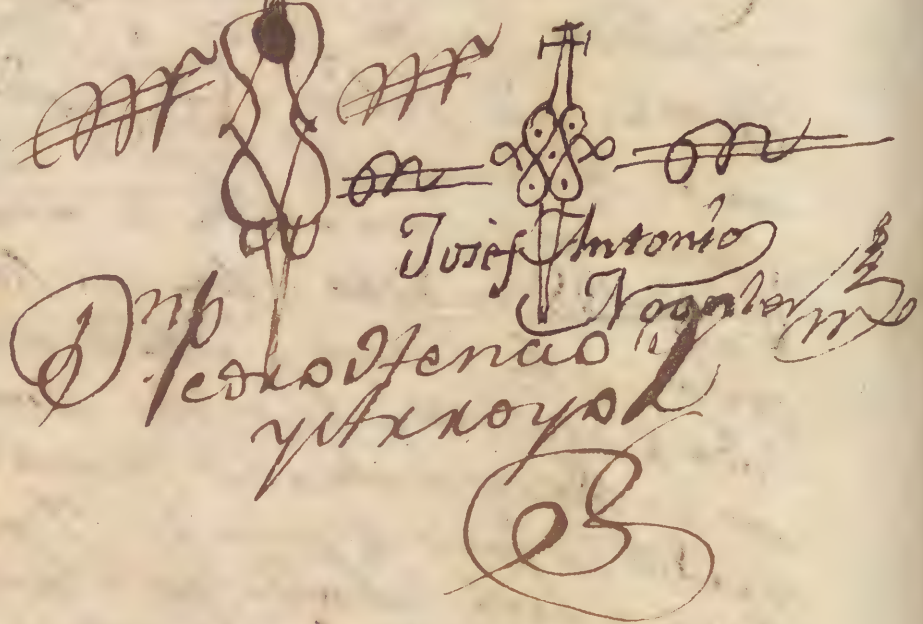 Josef Antonio
Nogales
Dn
Pedro Atencio
y Arroyo